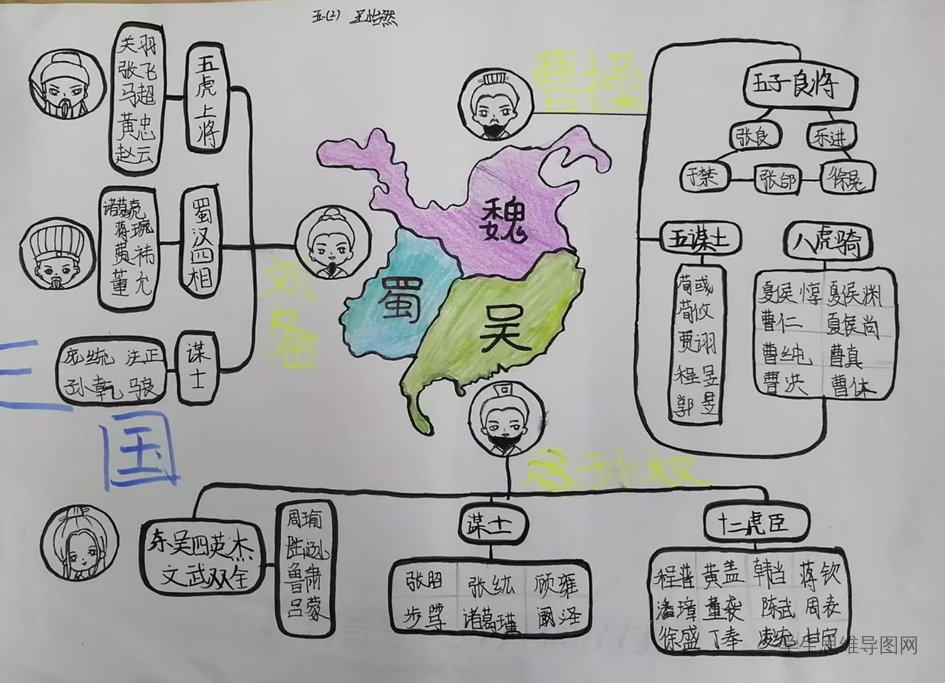 五(2) 王怡然
关羽
张飞
马超
黄忠
赵云
五虎上将
诸葛亮
蒋琬
董允
蜀汉四相
庞统 法正
孙乾 马良
谋士
刘备
三国
魏
蜀
吴
曹操
五子良将
张良 乐进
于禁 张郃 徐晃
五谋士
荀或
荀攸
贾诩
程昱
郭昱
八虎骑
夏侯惇 夏侯渊
曹仁 夏侯尚
曹纯 曹真
曹洪 曹休
孙权
东吴四英杰
文武双全
周瑜
陆逊
鲁肃
吕蒙
谋士
张昭 张纮 顾雍
步骘 诸葛瑾 阚泽
十二虎臣
程普 黄盖 韩当 蒋钦
潘璋 董袭 陈武 周泰
徐盛 丁奉 凌统 甘宁
思维导图网